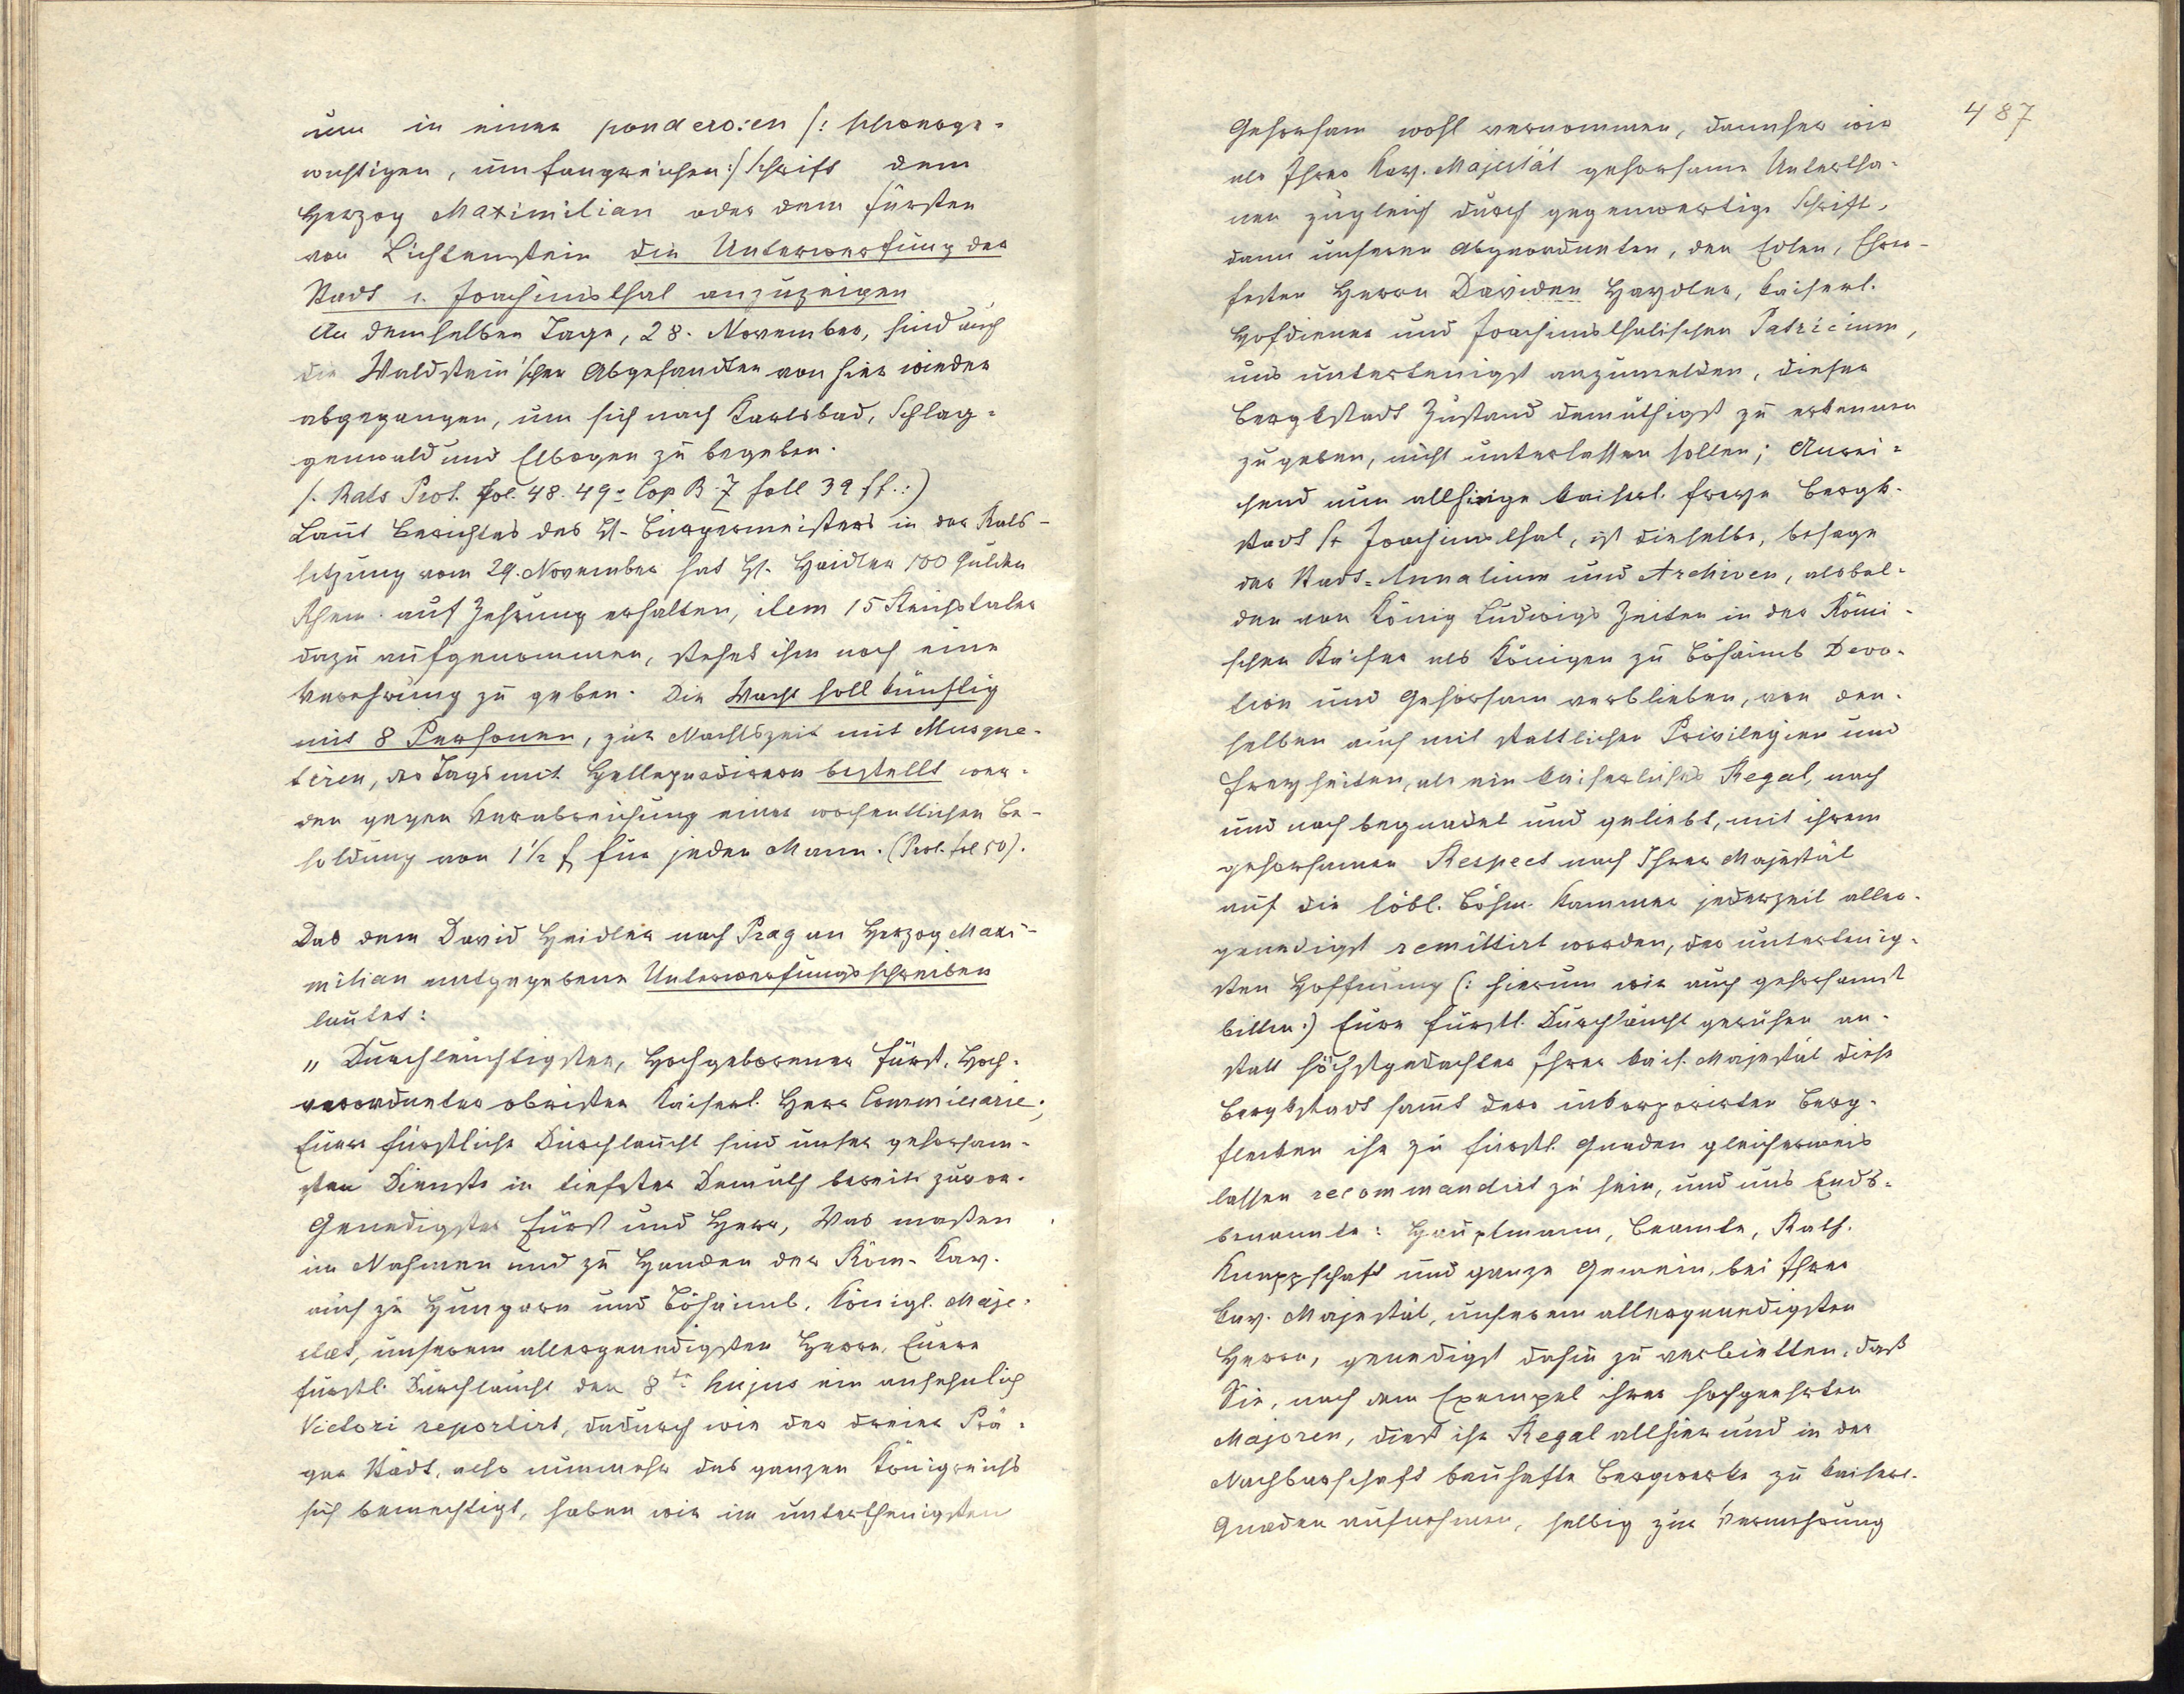 um in einer ponderosen /: schwerge-
wichtigen, umfangreichen :/ Schrift dem
Herzog Maximilian oder dem Fürsten
von Lichtenstein die Unterwerfung der
Stadt s. Joachimsthal anzuzeigen
An demselben Tage, 28. November, sind auch
die Waldstein'schen Abgesandten von hier wieder
abgegangen, um sich nach Karlsbad, Schlag-
genwald und Elbogen zu begeben.
/. Rats Prot. fol. 48. 49 = Cop B. 7 foll 39 ff. :)
Laut Berichtes des H. Bürgermeisters in der Rats-
sitzung vom 29. November hat H. Heidler 100 Gulden
Rhein. auf Zehrung erhalten, item 15 Reichstaler
dazu aufgenommen, stehet ihm noch eine
Verehrung zu geben. Die Wacht soll künftig
mit 8 Personen, zur Nachtszeit mit Musque-
tiren, des Tags mit Hellepardirern bestellt wer-
den gegen Verabreichung einer wochentlichen Be-
soldung von 1 1/2 f für jeden Mann. (Prot. fol 50).
Das dem David Heidler nach Prag an Herzog Maxi-
milian mitgegebene Unterwerfungsschreiben
lautet:
"Durchleuchtigster, Hochgeborener Fürst, Hoch-
verordneter obrister Kaiserl. Herr Commissarie;
Euer fürstliche Durchlaucht sind unser gehorsam-
sten Dienste in tiefster Demuth bereit zuvor.
Genedigster Fürst und Herr, Was maßen
im Nahmen und zu Handen der Röm. Kay.
auch zu Hungarn und Böhaimb. Königl. Maje-
stæt, unserem allergenedigsten Herrn, Euere
fürstl. Durchlaucht den 8ten hujus ein ansehnlich
Victori reportirt, dadurch wie der dreier Prä-
ger Städt, also nunmehr des ganzen Königreichs
sich bemechtigt, haben wir im unterthenigsten
487
Gehorsam wohl vernommen, dannher wir
als Ihrer Kay. Majestät gehorsame Untertha-
nen zugleich durch gegenwertige Schrift,
dann unseren Abgeordneten, den Edlen, Ehrn-
festen Herrn Daviden Haydler, Kaiserl.
Hofdiener und Joachimsthalischen Patricium,
uns untertenigst anzumelden, dieser
Bergkstadt Zustand demüthigst zu erkennen
zu geben, nicht unterlassen sollen; Anrei-
chend nun allhiesige kaiserl. freye Bergk-
stadt St Joachimsthal, ist dieselbe, besage
der Stadt-Annalium und Archiven, alsbal-
den von König Ludwigs Zeiten in der Römi-
schen Kaiser als Königen zu Böhaimb Devo-
tion und Gehorsam verblieben, von den-
selben auch mit stattlichen Privilegien und
Freyheiten, als ein kaiserliches Regal, nach
und nach begnadet und geliebt, mit ihrem
gehorsamen Respect nach Ihrer Majestät
auf die löbl. Böhm. Kammer jederzeit aller-
genedigst remittirt worden, der untertenig-
sten Hoffnung (: hierum wir auch gehorsamst
bitten :) Eure fürstl. Durchlaucht geruhen an-
statt höchstgedachter Ihrer kais. Majestät diese
Bergkstadt samt dero inkorporirten Berg-
flecken ihr zu fürstl. Gnaden gleicherweis
lassen recommandirt zu sein, und uns Ends-
benannte: Hauptmann, Beamte, Rath.
Knappschaft und ganze Gemein, bei Ihrer
Kay. Majestät, unserem allergenedigsten
Herrn, genedigst dahin zu verbietten, daß
Sie, nach dem Exempel ihrer hochgeehrten
Majoren, diest ihr Regal allhier und in der
Nachbarschaft bauhafte Bergwerke zu kaiserl.
Gnaden aufnehmen, selbig zur Vermehrung